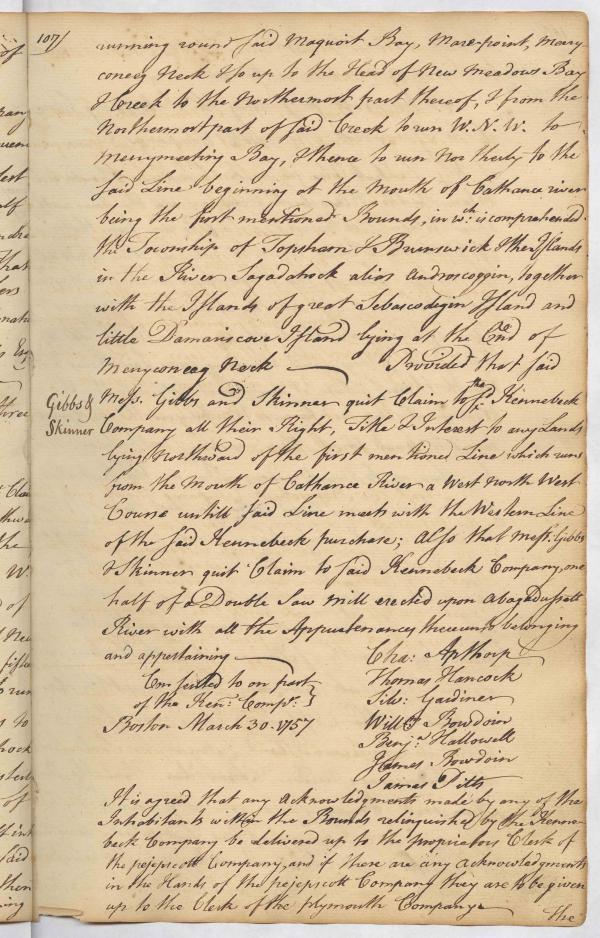 107/
running round said Maquoit Bay, Mare-point, Merry
coneeg Neck & so up to the Head of New Meadows Bay
& Creek to the Northermost part thereof, & from the
Northermost part of said Creek to run W. N. W. to
Merrymeeting Bay, & thence to run Northerly to the
said Line beginning at the Mouth of Cathance river
being the first mentioned Bounds, in wch. is comprehended
the Township of Topsham & Brunswick & the Islands
in the River Sagadahock alias Androscoggin, together
with the Islands of great Sebascodegin Island and
little Damariscove Island lying at the End of
Merryconeag Neck — Provided that said
Gibbs &
Skinner
Mess. Gibbs and Skinner quit Claim to the sd. Kennebeck
Company all their Right, Title & Interest to any Lands
lying Northward of the first mentioned Line which runs
from the Mouth of Cathance River a West North West
Course untill said Line meets with the Western Line
of the said Kennebeck purchase; Also that Mess. Gibbs
& Skinner quit Claim to said Kennebeck Company, one
half of a Double Saw Mill erected upon Abagadussett
River with all the Appurtenances thereunto belonging
and appertaining —
Consented to on part
of the Ken: Compy. }
Boston March 30. 1757
Cha: Apthorp
Thomas Hancock
Silv: Gardiner
Willm Bowdoin
Benja Hallowell
James Bowdoin
James Pitts
It is agreed that any acknowledgments made by any of the
Inhabitants within the Bounds relinquished by the Kenne-
beck Company be delivered up to the propriators Clerk of
the pejepscott Company, and if there are any acknowledgments
in the Hands of the pejepscott Company they are to be given
up to the Clerk of the plymouth Company —
The